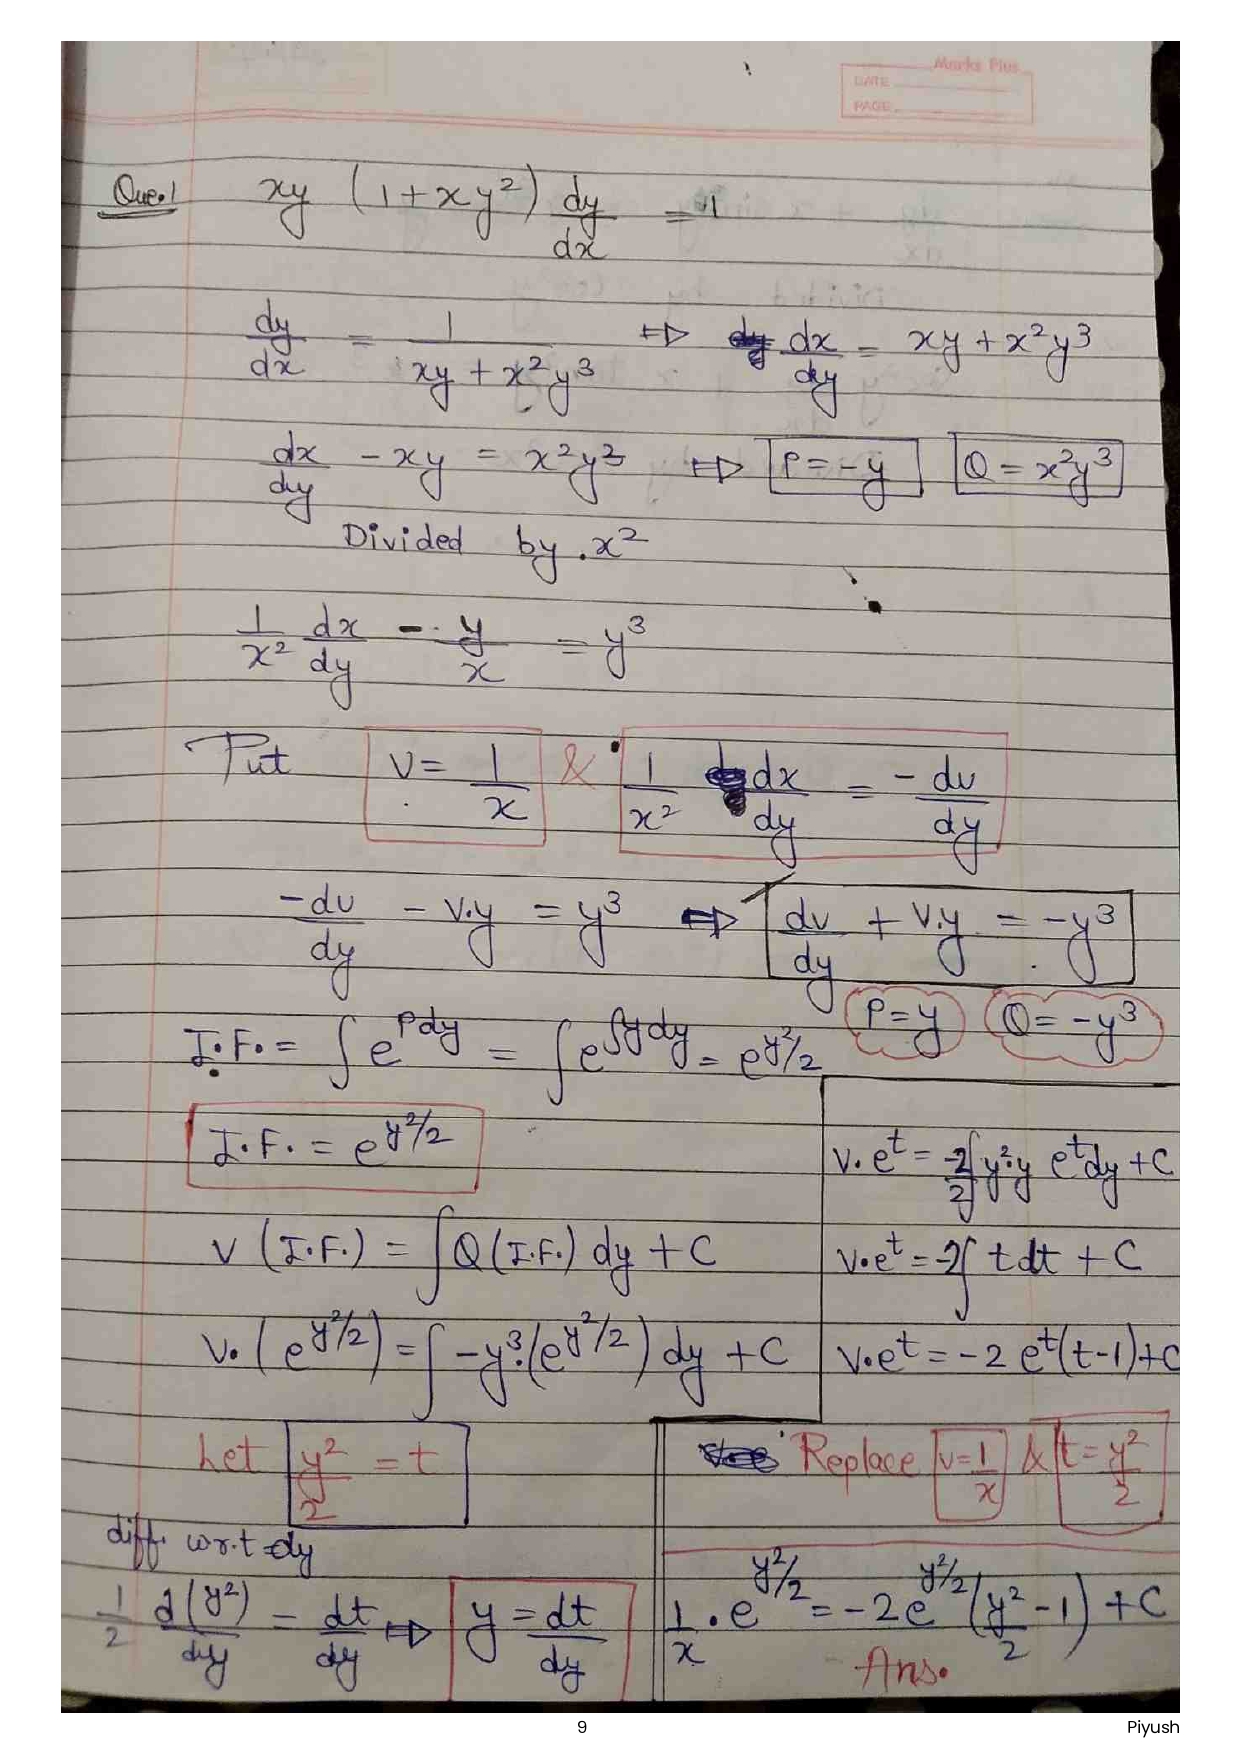 Marks Plus
DATE
PAGE
Que.1 xy (1+xy²) dy/dx = 1
dy/dx = 1/(xy + x²y³) ⇒ dx/dy = xy + x²y³
dx/dy - xy = x²y³ ⇒ P = -y Q = x²y³
Divided by x²
1/x² dx/dy - y/x = y³
Put v = 1/x & 1/x² dx/dy = -dv/dy
-dv/dy - v.y = y³ ⇒ dv/dy + v.y = -y³
P = y Q = -y³
I.F. = ∫e^Pdy = ∫e^∫ydy = e^y²/2
I.F. = e^y²/2
v (I.F.) = ∫Q (I.F.) dy + C
v. (e^y²/2) = ∫-y³.(e^y²/2) dy + C
Let y²/2 = t
diff. w.r.t dy
1/2 d(y²)/dy = dt/dy ⇒ y = dt/dy
v. e^t = -2/2 ∫y².y e^t dy + C
v.e^t = -2∫ t dt + C
v.e^t = -2 e^t (t-1) + C
Replace v = 1/x & t = y²/2
1/x . e^y²/2 = -2e^y²/2 (y²/2 - 1) + C
Ans.
9
Piyush